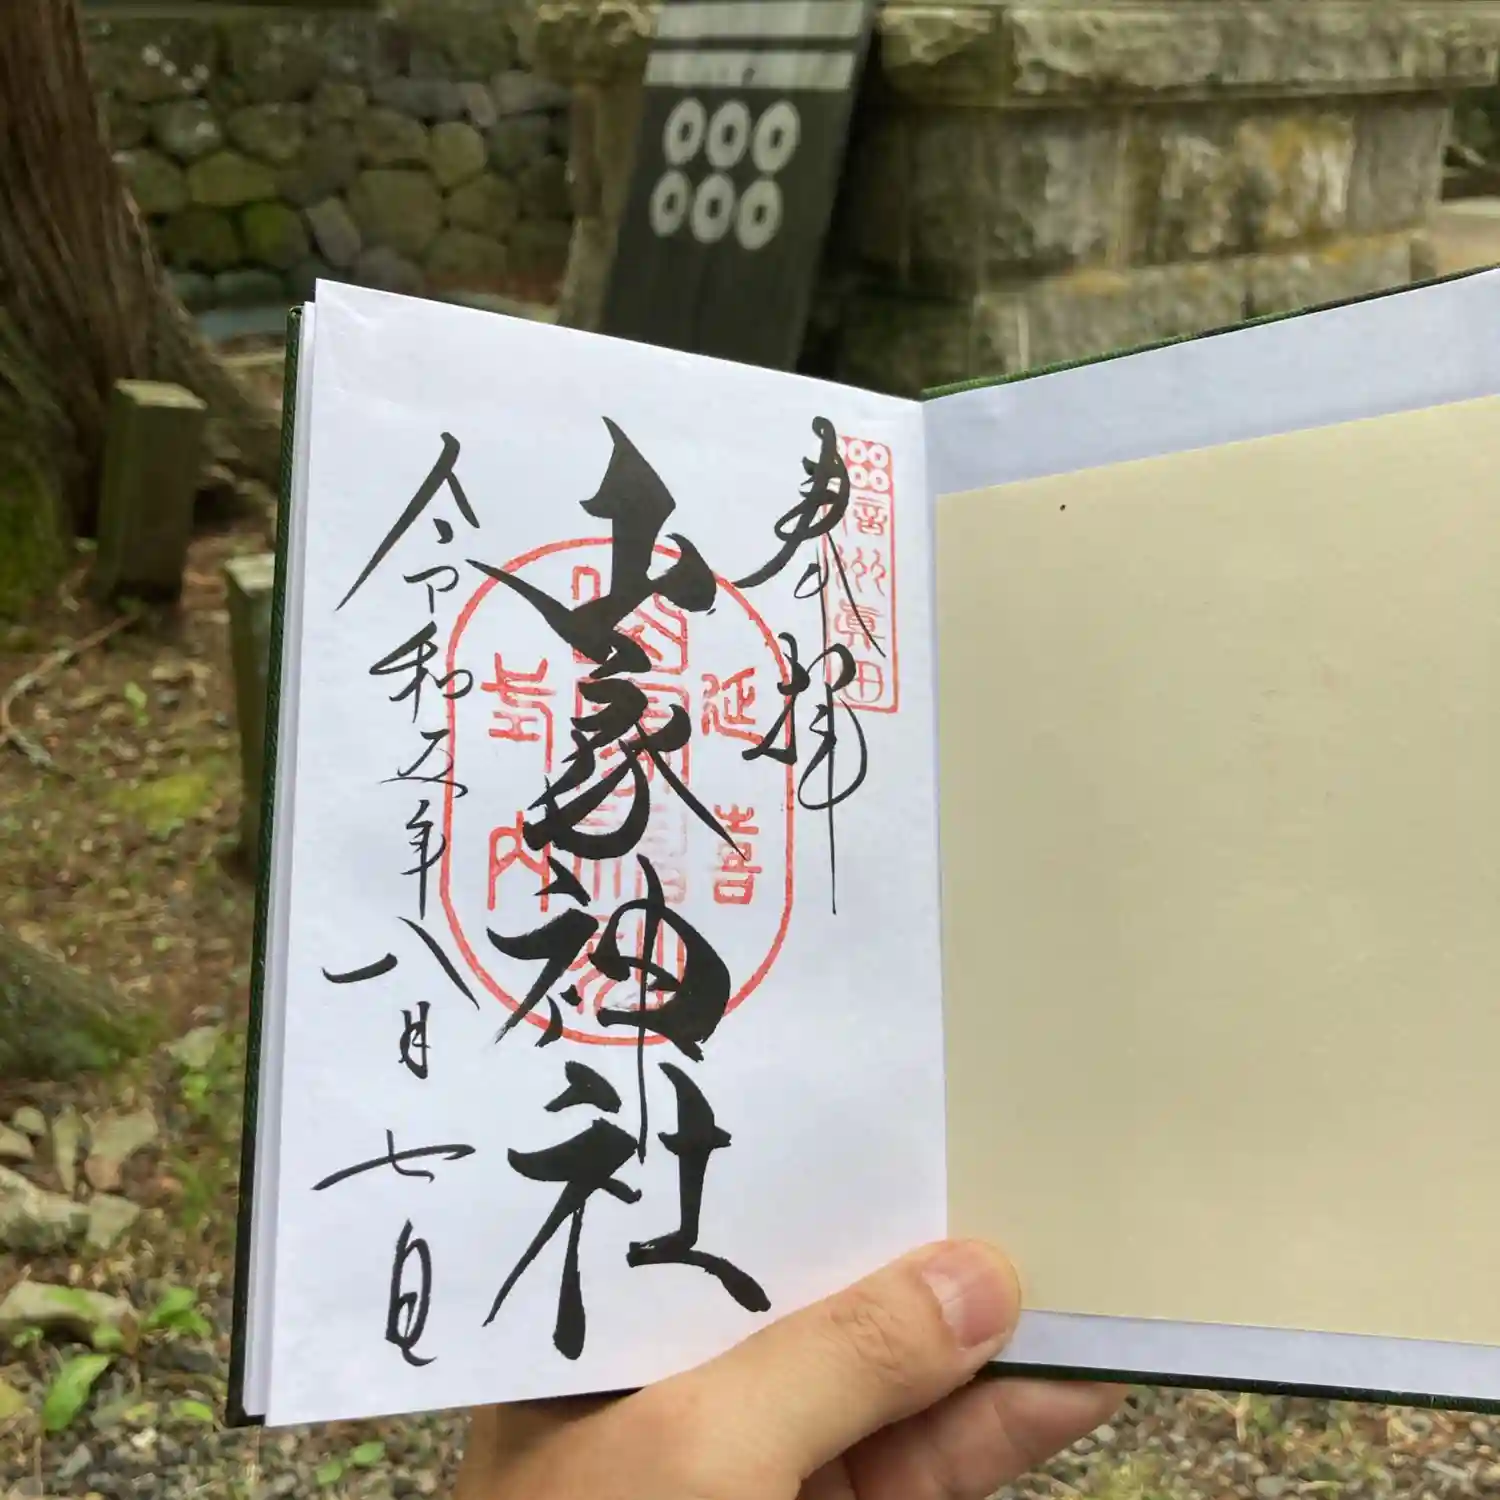 奉拝
信州眞田
山家神社
延喜
式内
令和五年八月七日